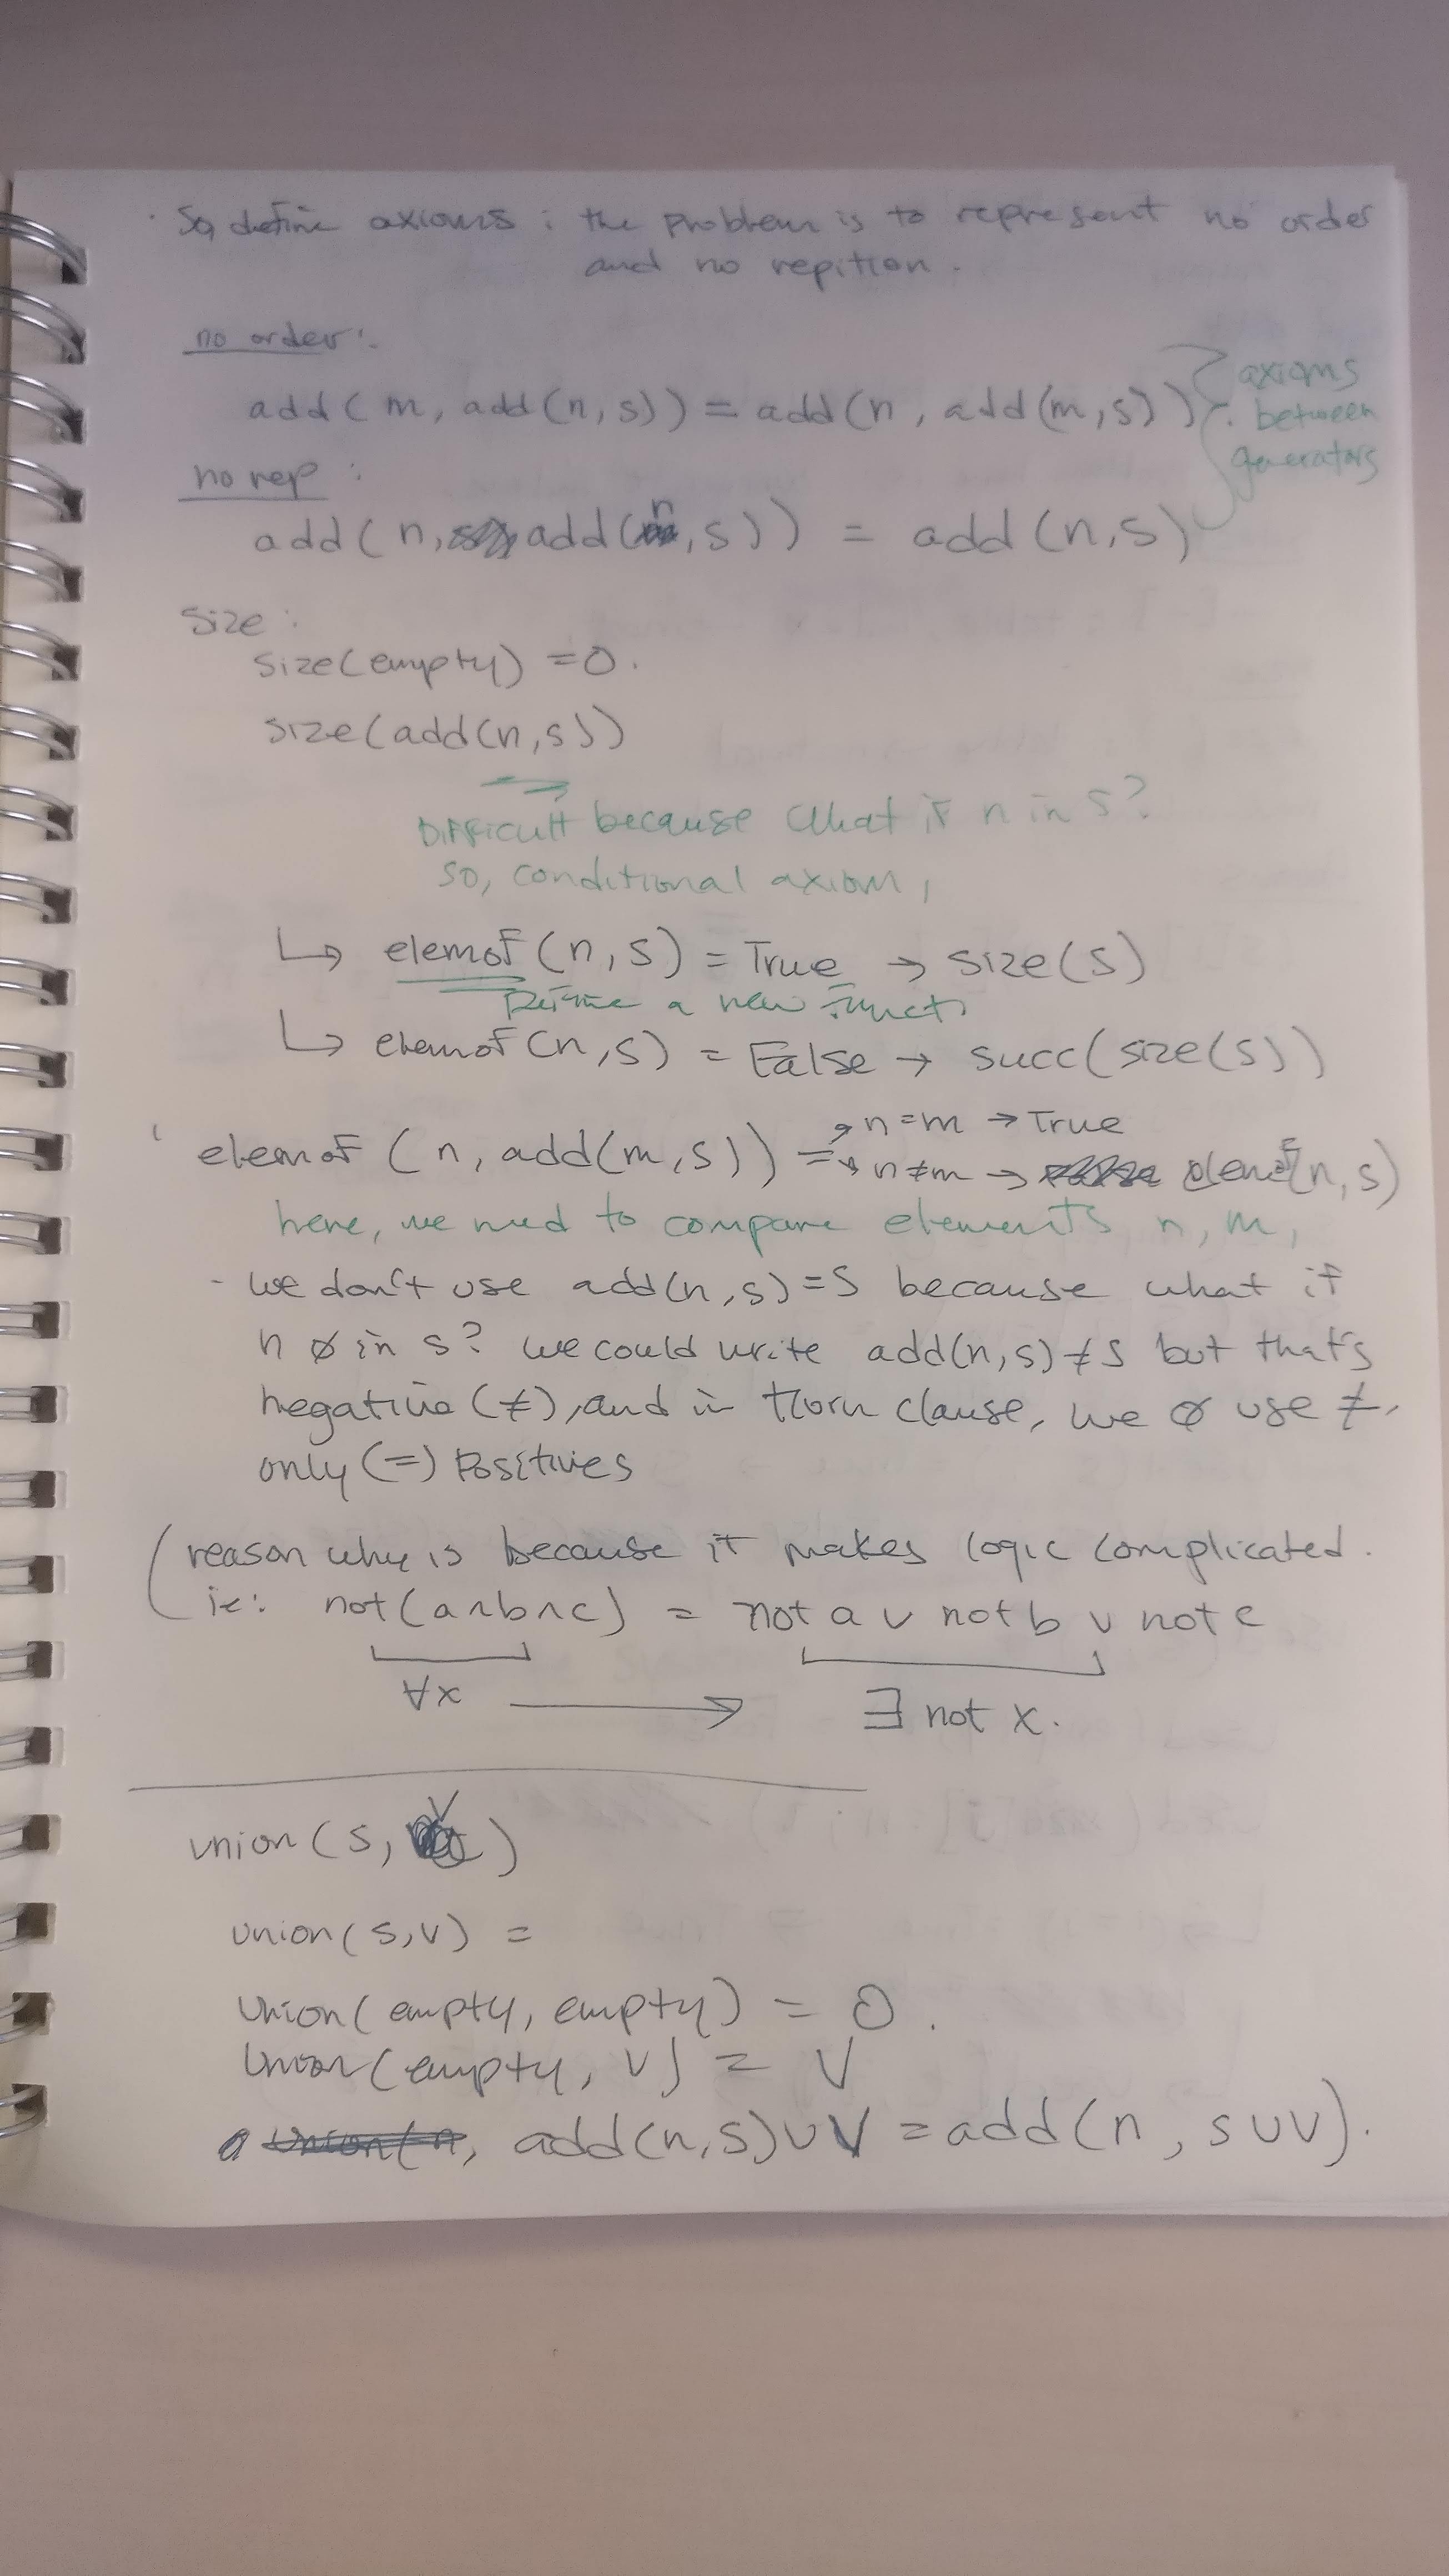 · So, define axioms : the problem is to represent no order
and no repition.
no order :
add( m, add(n,s)) = add(n, add(m,s))
axioms
between
generators
no rep :
add( n, add(n,s)) = add(n,s)
Size :
size(empty) = 0.
size(add(n,s))
Difficult because what if n in s?
so, conditional axiom,
↳ elemof(n,s) = True → size(s)
Define a new funct
↳ elemof(n,s) = False → succ(size(s))
elemof ( n, add(m,s)) = n=m → True
n≠m → elemof(n,s)
here, we need to compare elements n, m,
- we don't use add(n,s)=s because what if
n ∅ in s? we could write add(n,s)≠s but that's
negative (≠), and in Horn clause, we ∅ use ≠,
only (=) Positives
(reason why is because it makes logic complicated.
ie: not(a∧b∧c) = not a ∨ not b ∨ not c
∀x → ∃ not x.
union(s, v)
union(s,v) =
union(empty, empty) = 0.
union(empty, v) = v
add(n,s)∪v = add(n, s∪v).